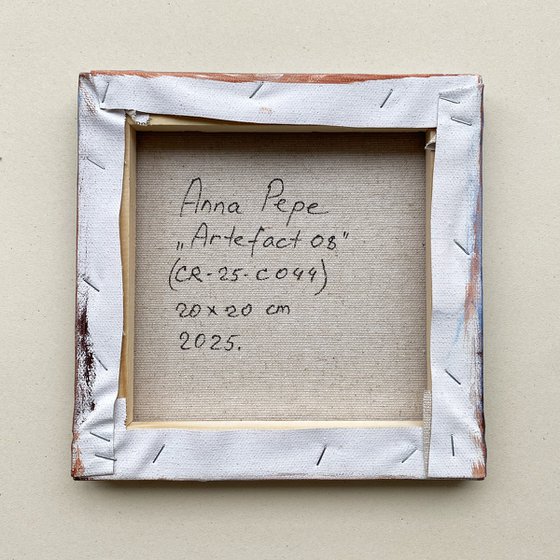 Anna Pepe
„Artefact 08"
(CR-25-C044)
20x20 cm
2025.